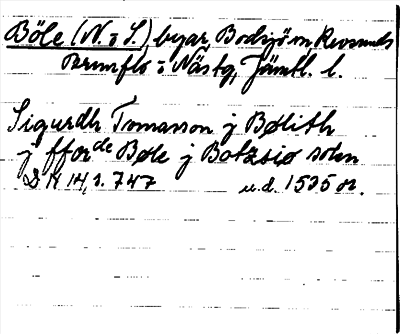 Böle (N. o S.), byar, Bodsjö sn, Revsunds
Brunflo o Näs tg, Jämtl. l.
Sigurdh Tomasson j Bölith
j fforde Böle j Botzsiø sokn
DN 14, s. 747 u.d. 1535 or.